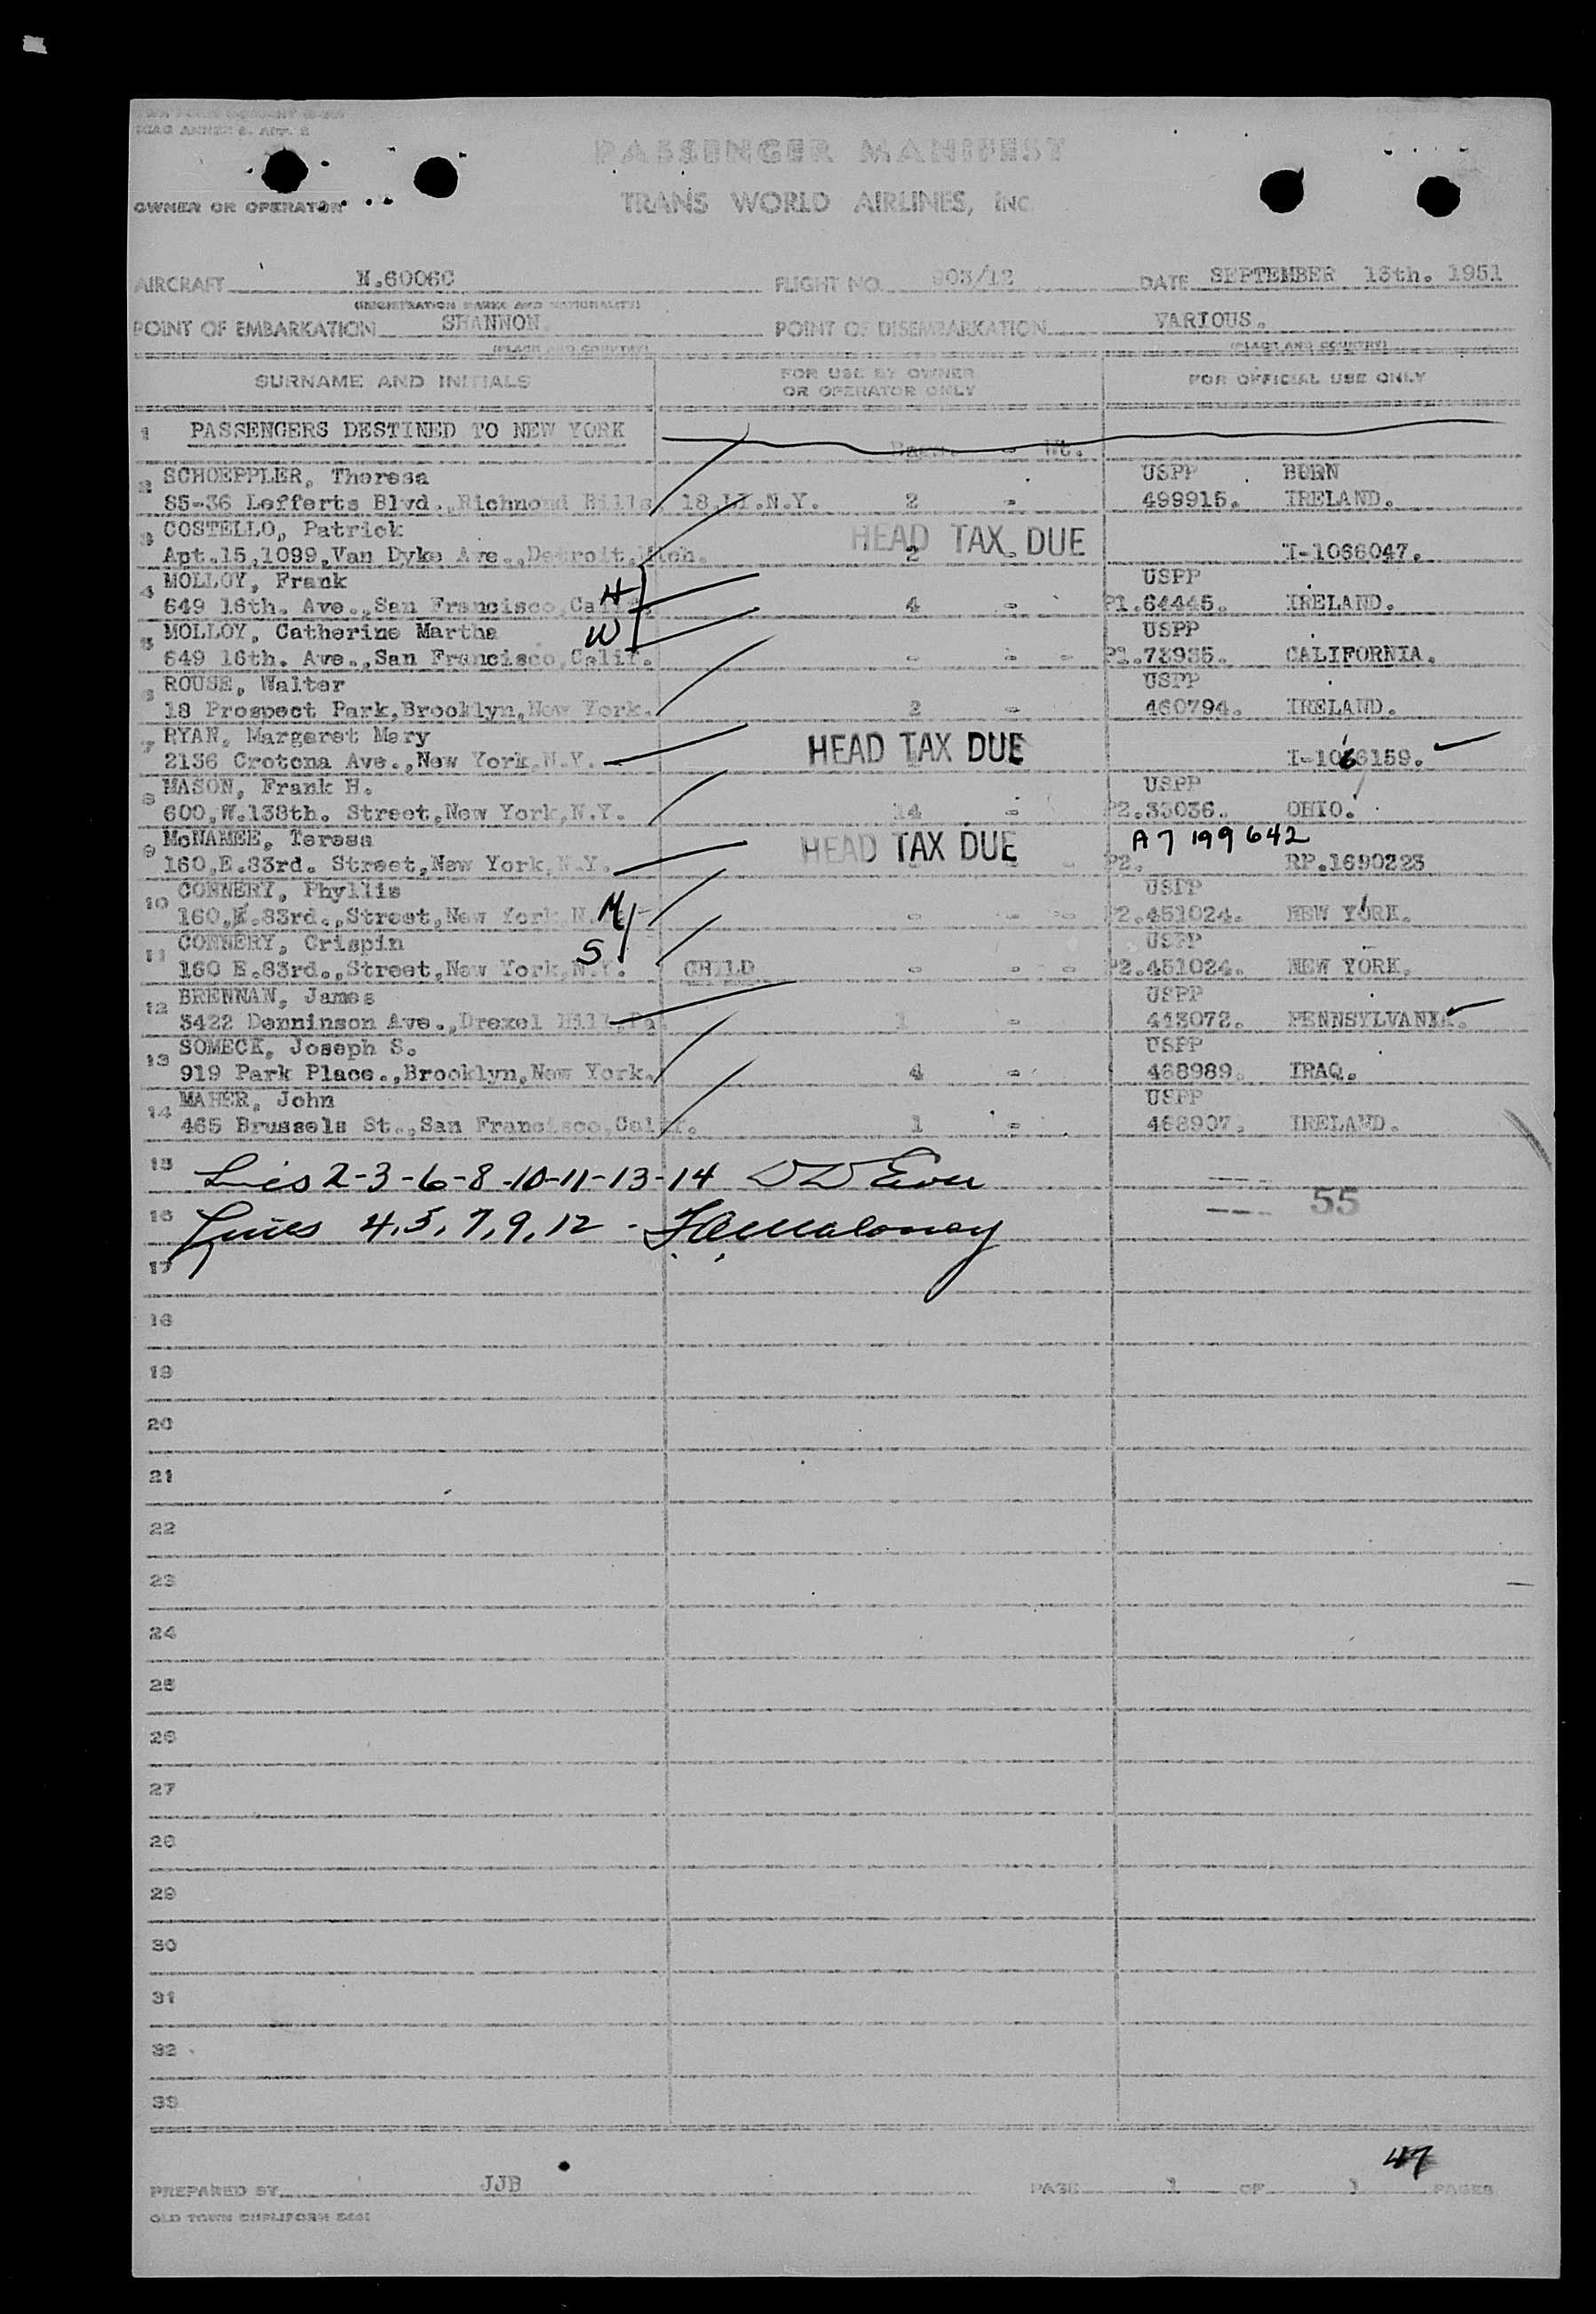 ICAO ANNEX 9. APP. 2
PASSENGER MANIFEST
OWNER OR OPERATOR
TRANS WORLD AIRLINES, INC.
AIRCRAFT N.6006C FLIGHT NO. 903/12 DATE SEPTEMBER 13th. 1951
(REGISTRATION MARKS AND NATIONALITY)
POINT OF EMBARKATION SHANNON. POINT OF DISEMBARKATION VARIOUS.
(PLACE AND COUNTRY) (PLACE AND COUNTRY)
SURNAME AND INITIALS FOR USE BY OWNER OR OPERATOR ONLY FOR OFFICIAL USE ONLY
1 PASSENGERS DESTINED TO NEW YORK
- Wt.
2 SCHOEPPLER, Theresa USPP BORN
85-36 Lefferts Blvd.,Richmond Hills 18,LI.N.Y. 2 - 499915. IRELAND.
3 COSTELLO, Patrick HEAD TAX DUE
Apt.15,1099,Van Dyke Ave.,Detroit,Mich. 2 - I-1066047.
4 MOLLOY, Frank USPP
649 16th. Ave.,San Francisco,Calif. H 4 - P1.64445. IRELAND.
5 MOLLOY, Catherine Martha W USPP
649 16th. Ave.,San Francisco,Calif. - - - P1.73935. CALIFORNIA.
6 ROUSE, Walter USPP
18 Prospect Park,Brooklyn,New York. 2 - 460794. IRELAND.
7 RYAN, Margaret Mary HEAD TAX DUE
2136 Crotona Ave.,New York,N.Y. I-1066159.
8 MASON, Frank H. USPP
600,W.138th. Street,New York,N.Y. 14 - P2.33036. OHIO.
9 McNAMEE, Teresa HEAD TAX DUE A7 199 642
160,E.83rd. Street,New York,N.Y. - P2. RP.1690223
10 CONNERY, Phyllis USPP
160,E.83rd.,Street,New York,N.Y. M - - - P2.451024. NEW YORK.
11 CONNERY, Crispin S USPP
160 E.83rd.,Street,New York,N.Y. CHILD - - - P2.451024. NEW YORK.
12 BRENNAN, James USPP
3422 Denninson Ave.,Drexel Hill,Pa. 1 - 443072. PENNSYLVANIA.
13 SOMECK, Joseph S. USPP
919 Park Place.,Brooklyn,New York. 4 - 468989. IRAQ.
14 MAHER, John USPP
465 Brussels St.,San Francisco,Calif. 1 - 468907. IRELAND.
15 Lies 2-3-6-8-10-11-13-14
55
16 Lines 4,5,7,9,12 - Maloney
17
18
19
20
21
22
23
24
25
26
27
28
29
30
31
32
33
47
PREPARED BY JJB PAGE 1 OF 1 PAGES
OLD TOWN DUPLIFORM